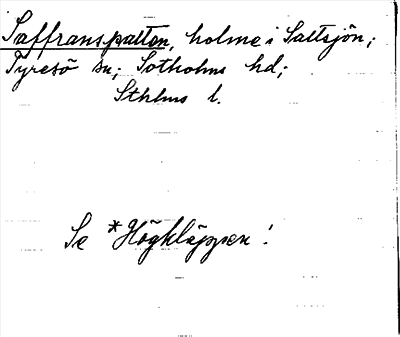 Saffranspatton, holme i Saltsjön;
Tyresö sn; Sotholms hd;
Sthlms l.
Se *Högkläppen!